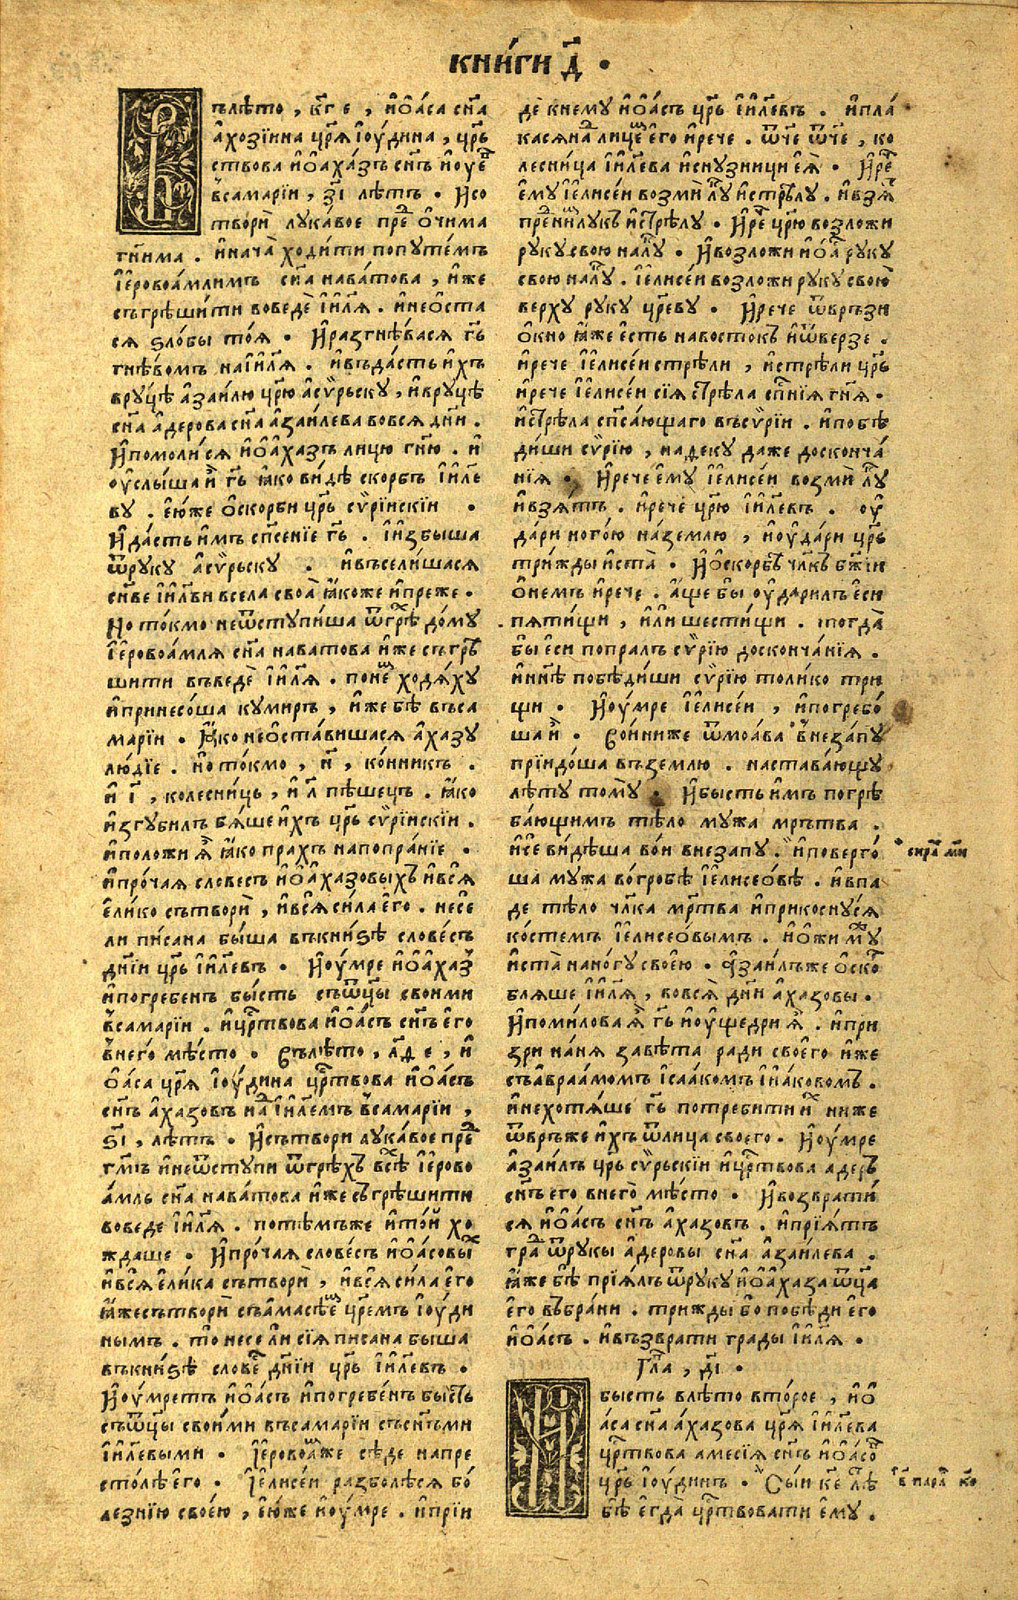 кни́ги д҃ .
Въ лѣто , к҃г е , іѡаса сн҃а
а҆хозїина цр҃ѧ і҆оу́дина , цр҃ь
ствова і҆ѡаха́зъ сн҃ъ і҆оуе҆
в̾самарїи , з҃і лѣтъ . И҆со
твори̏ лука́вое пре҆ ѻ҆чима
гн҃има . и҆нача̀ ходи́ти попуте́мъ
і҆еровоа́млимъ сн҃а нава́това , и҆же
съгрѣши́ти воведѐ і҆и҃лѧ . и҆неѡ҆ста
сѧ ѕло́бы тоѧ̀ . И҆разгнѣ́васѧ гь҃
гнѣ́вомъ наі҆и҃лѧ . и҆въда́сть и҆хъ
вру́цѣ а҆заи́лю цр҃ю а҆сѵ́рьску , и҆вру́цѣ
сн҃а а҆дерова сн҃а а҆заи́лева вовсѧ дн҃и .
И҆помоли́сѧ і҆ѡаха́зъ лицю гн҃ю . и҆
ѹ҆слы́ша и҆̀ гь҃ ꙗ҆ко ви́дѣ скорбъ і҆и҃ле
ву . е҆ю́же ѡ҆скорби цр҃ь сѵ́рїнскїи .
И҆да́сть и҆мъ сп҃сенїе гь҃ . и҆и҆збыша
ѿруку а҆сѵ́рьску . и҆въсели́шасѧ
сн҃ве і҆и҃лви всела своѧ̀ ꙗ҆коже и҆пре́же .
Но то́кмо неѿступи́ша ѿгрѣ҆ до́му
і҆еровоа́млѧ сн҃а нава́това и҆же съгрѣ
шити въведѐ і҆и҃лѧ . поне҆ ходѧ́ху
и҆принесо́ша кумиръ , и҆же бѣ̀ въса
марїи . Ꙗ҆ко неѡ҆ста́вишасѧ а҆ха́зу
лю́дїе . но то́кмо , н҃ , ко́нникъ .
и҆ і҃ , колесни́ць , и҆ л҃ пѣшець . ꙗ҆ко
и҆згуби́лъ бѧ́ше и҆хъ цр҃ь сѵ́рїискїи .
и҆положи ѧ҆̀ ꙗ҆ко прахъ напопра́нїе .
и҆про́чаѧ словесъ і҆ѡаха́зовыхъ и҆всѧ̀
е҆ли́ко сътвори̏ , и҆всѧ̀ си́ла е҆го . несе
ли пи́сана бы́ша вкни́ѕѣ слове́съ
дн҃їи цр҃ь і҆и҃левъ . И҆ѹ҆мре і҆ѡаха́з
и҆погребенъ бы́сть съѿцы своими
в̾самарїи . и҆цр҃твова і҆ѡасъ сн҃ъ е҆го
в̾него мѣсто . Въ лѣто , л҃д е , и҆
ѡаса цр҃ѧ і҆оу́дина цр҃твова і҆ѡасъ
сн҃ъ а҆ха́зовъ на҆ і҆и҃лемъ в̾самарїи ,
ѕ҃і , лѣтъ . И҆сътвори лука́вое пре҆
гм҃ъ и҆неѿступи ѿгрѣхъ всѣ҆ і҆еро́во
а́млъ сн҃а нава́това и҆же съгрѣши́ти
воведе і҆и҃лѧ . потѣ́мъже и҆то́й хо
ждаше . И҆про́чаѧ слове́съ і҆ѡасовы҆
и҆всѧ̀ е҆ли́ка сътвори̏ , и҆всѧ̀ си́ла е҆го
ꙗ҆жесътвори̏ съа҆масїе҆ цр҃емъ і҆оу́ди
нымъ . то несе ли сїѧ писана бы́ша
въкни́ѕѣ слове҆ дн҃їи цр҃ь і҆и҃левъ .
И҆ѹ҆мретъ і҆ѡасъ и҆погребе́нъ бы́сть
съѿцы свои́ми въсамарїи съсн҃ъми
і҆и҃левыми . І҆еровоа҆же сѣ́де напре
сто́лѣ е҆го . І҆елисе́и разболѣ́сѧ бо
лезнїю свое́ю , е҆ю́же и҆ѹ҆мре . и҆прїи
дѐ кнему і҆ѡасъ цр҃ь і҆и҃левъ . и҆пла́
касѧна҆ лице҆ е҆го и҆рече . ѿче ѿче , ко
лесни́ца і҆и҃лева и҆снузници е҆ѧ̀ . И҆ре҆
е҆му і҆елисе́и возми лу҆ и҆стрѣлу . и҆взѧ҆
пре҆ни҆лукъ и҆стрѣлу . И҆ре҆ цр҃ю возложи
руку свою налу҆ . И҆возложи і҆ѡа҆ руку
свою налу҆ . і҆елисе́и возложи руку свою̀
верху руку цр҃еву . И҆рече ѿврьзи
ѻ҆кно ꙗ҆же е҆сть навостокъ и҆ѿверзе .
и҆рече і҆елисе́и стрѣли , и҆стрѣли цр҃ь
и҆рече і҆елисе́и сїѧ стрѣла сп҃нїѧ гн҃ѧ .
и҆стрѣла сп҃са́ющаго въсѵ́рїи . и҆побѣ
диши сѵ́рїю , надеку даже доскончѧ́
нїѧ . И҆рече е҆му і҆елисе́и возми̏ лу҆
и҆взѧ́тъ . и҆рече цр҃ю і҆и҃левъ . ѹ҆
да́ри ного́ю на́землю , и҆ѹ҆да́ри цр҃ь
три́жды и҆ста̀ . И҆ѡ҆скорбѣ чл҃къ бж҃іи
ѡ҆немъ и҆рече . а҆ще бы ѹ҆да́рилъ е҆си
пѧти́щи , и҆ли шести́щи . тогда̀
бы е҆си попралъ сѵ́рїю досконча́нїѧ .
и҆нн҃ѣ побѣ́диши сѵ́рїю толи́ко три
щи . И҆ѹ҆мре і҆елисе́и , и҆погребо́
ша и҆̀ . Во́и́ниже ѿмоа́ва в̾неза́пу
прїидо́ша въземлю . настава́ющу
лѣту тому̀ . И҆бысть и҆мъ погрѣ
ба́ющимъ тѣ́ло мужа мрътва .
и҆се ви́дѣша вои́ внеза́пу . и҆поверго́
ша мужа во́гробѣ і҆елисео́вѣ . и҆впа
де тѣло чл҃ка мр҃тва и҆прикоснусѧ
ко́стемъ і҆елисео́вымъ . и҆ѡ҆жи му҆
и҆ста̀ нано́гу свое́ю . А҆заи́лъже ѡ҆ско҆
блѧше і҆и҃лѧ , вовсѧ̀ дн҃и а҆ха́зовы .
И҆поми́лова ѧ҆̀ гь҃ и҆ѹ҆ще́дри ѧ҆̀ . и҆при
зри нанѧ завѣ́та ради своего и҆же
съа҆враа́момъ і҆саа́комъ і҆ꙗ҆ковомъ .
и҆нехотѧ́ше гь҃ потреби́ти и҆҆ ниже
ѿврѣже и҆хъ ѿлица своего . И҆ѹ҆мре
а҆заи́лъ цр҃ь сѵ́рьскїи и҆цр҃твова а҆деръ
сн҃ъ его внего̀ мѣсто . И҆возврати́
сѧ і҆ѡасъ сн҃ъ а҆ха́зовъ . и҆прїѧтъ
гра҆ ѿрукы а҆деровы сн҃а а҆заи́лева .
ꙗ҆же бѣ̀ прїѧ́лъ ѿруку і҆ѡаха́за ѿца
е҆го въбра́ни . три́жды бо побѣди е҆го
і҆ѡасъ . и҆възврати грады і҆и҃лѧ .
Гла҃ , д҃і .
И бысть влѣто второе , і҆ѡ
аса сн҃а а҆ха́зова цр҃ѧ і҆и҃лева
цр҃твова амесїѧ сн҃ъ і҆ѡасо҆
цр҃ь і҆оу́динъ . Сы́и к҃е лѣ҆
бѣ̀ е҆гда̀ цр҃твовати е҆му .
сира҆ м҃и
в҃ пара҆ к҃е